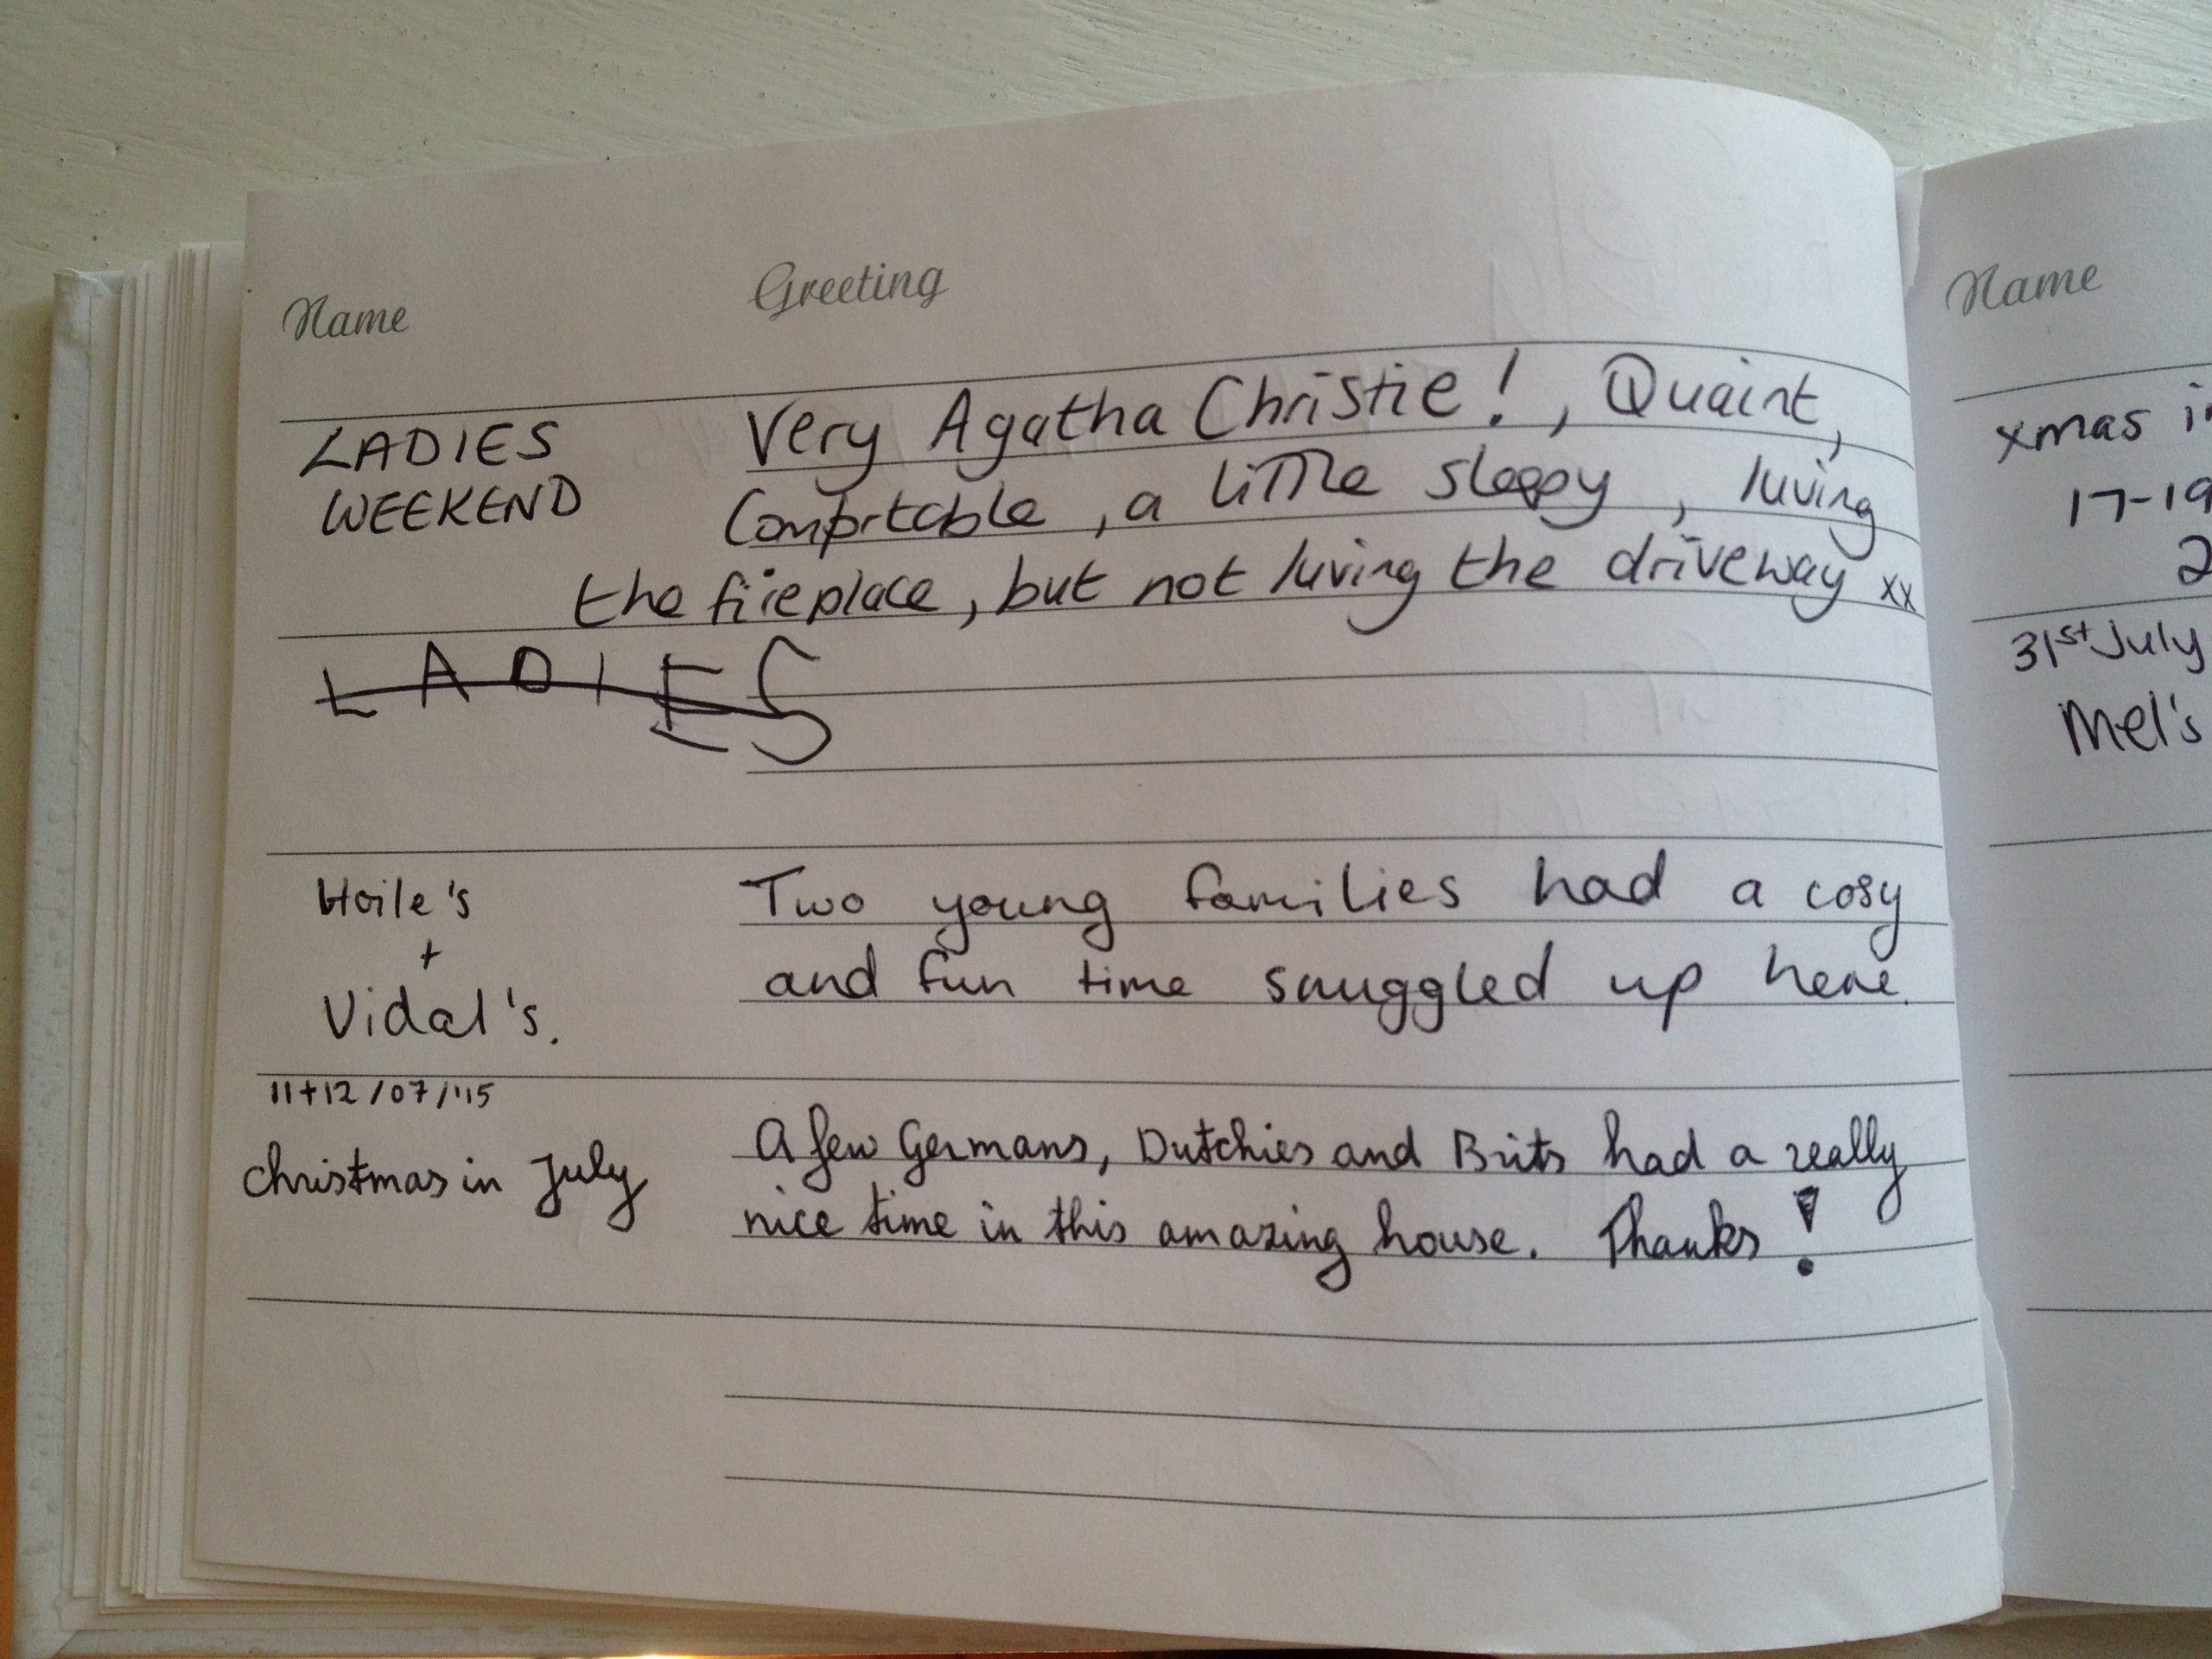 Name Greeting
LADIES Very Agatha Christie!, Quaint,
WEEKEND Comfortable, a little sleepy, luving
the fireplace, but not luving the driveway xx
LADIES
Hoile's Two young families had a cosy
+
and fun time snuggled up here.
Vidal's.
11+12/07/'15
Christmas in July A few Germans, Dutchies and Brits had a really
nice time in this amazing house. Thanks!
Name
xmas
17-19
2
31st July
Mel's